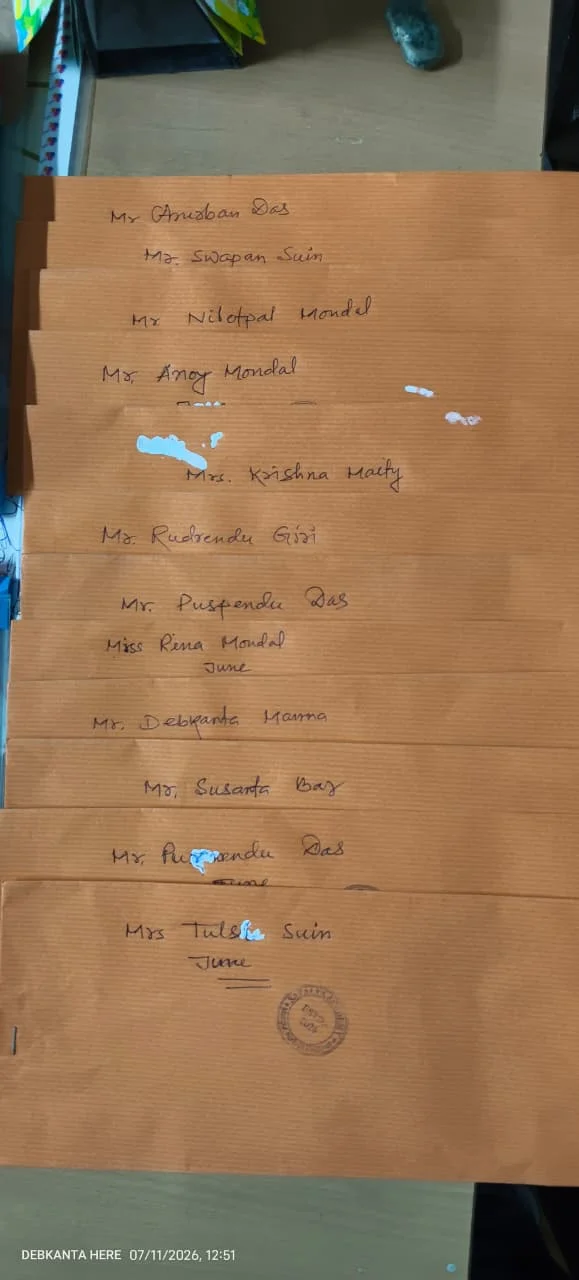 Mr Anirban Das
Mr. Swapan Suin
Mr Nilotpal Mondal
Mr. Anoy Mondal
Mrs. Krishna Maity
Mr. Rudrendu Giri
Mr. Puspendu Das
Miss Rina Mondal
June
Mr. Debkanta Manna
Mr. Susanta Bag
Mr. Das
June
Mrs Suin
June
DEBKANTA HERE 07/11/2026, 12:51